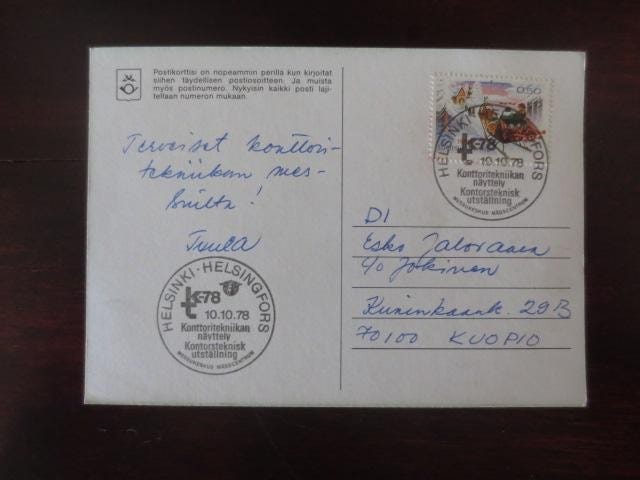 Postikorttisi on nopeammin perillä kun kirjoitat
siihen täydellisen postiosoitteen. Ja muista
myös postinumero. Nykyisin kaikki posti laji-
tellaan numeron mukaan.
0,50
HELSINKI · HELSINGFORS
k-78
10.10.78
Konttoritekniikan
näyttely
Kontorsteknisk
utställning
MESSUKESKUS MÄSSCENTRUM
Terveiset konttori-
tekniikan mes-
suilta!
Tuula
DI
Esko Jalovaara
c/o Jokinen
29 B
70100 KUOPIO
HELSINKI · HELSINGFORS
k-78
10.10.78
Konttoritekniikan
näyttely
Kontorsteknisk
utställning
MESSUKESKUS MÄSSCENTRUM